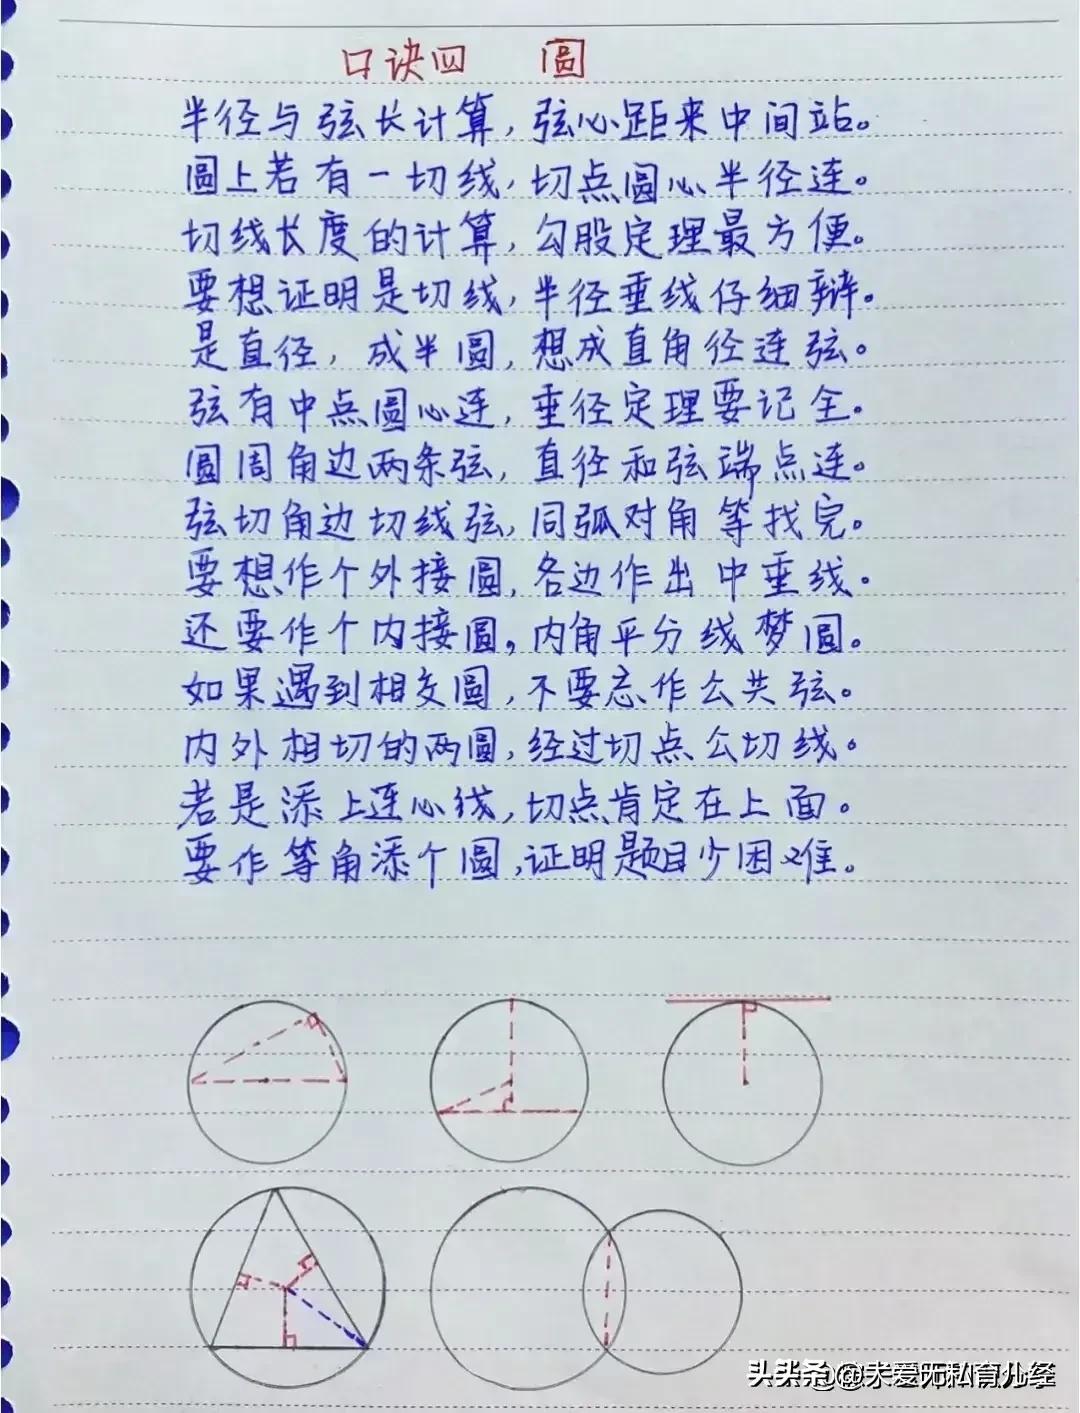 口诀四 圆
半径与弦长计算,弦心距来中间站。
圆上若有一切线,切点圆心半径连。
切线长度的计算,勾股定理最方便。
要想证明是切线,半径垂线仔细辩。
是直径,成半圆,想成直角径连弦。
弦有中点圆心连,垂径定理要记全。
圆周角边两条弦,直径和弦端点连。
弦切角边切线弦,同弧对角等找完。
要想作个外接圆,各边作出中垂线。
还要作个内接圆,内角平分线梦圆。
如果遇到相交圆,不要忘作公共弦。
内外相切的两圆,经过切点公切线。
若是添上连心线,切点肯定在上面。
要作等角添个圆,证明题目少困难。